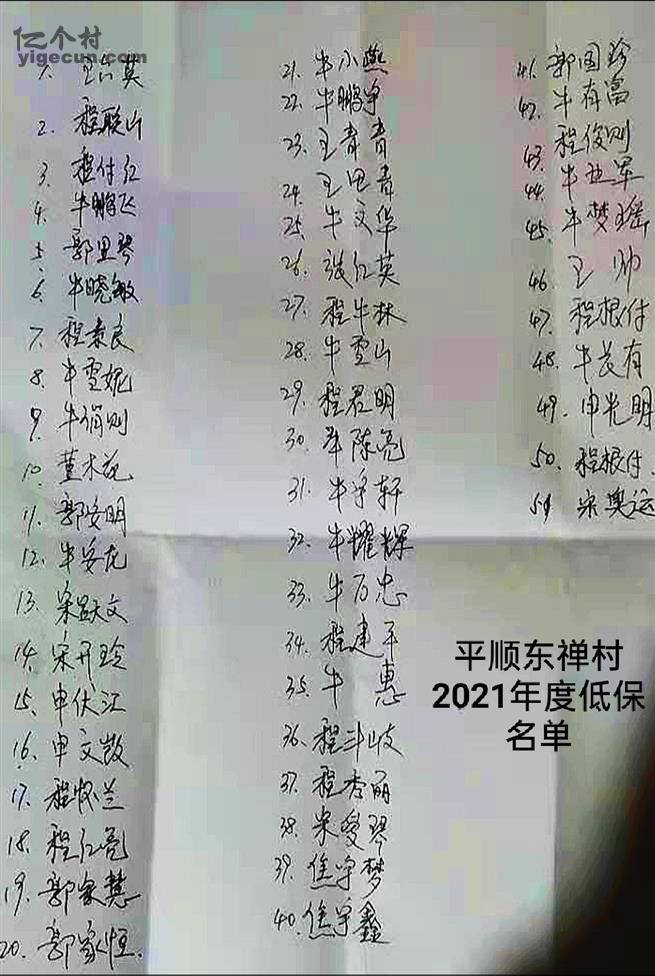 亿个村
yigecun.com
1. 王公英
2. 程联山
3. 程付红
4. 牛鹏飞
5. 郭里琴
6. 牛晓敏
7. 程秉良
8. 牛雪妮
9. 牛绢则
10 董木花
11. 郭安明
12. 牛安龙
13. 宋跃文
14. 宋开玲
15. 申伏江
16. 申文斌
17. 程怀兰
18. 程红亮
19. 郭家慧
20. 郭家恒
21. 牛小燕
22. 牛鹏宇
23. 王青青
24. 王田青
25 牛文华
26. 张红英
27. 程牛林
28. 牛雪山
29. 程君明
30. 陈亮
31. 牛宇轩
32. 牛耀辉
33. 牛万忠
34. 程建平
35. 牛惠
36. 程斗岐
37. 程秀丽
38. 宋爱琴
39. 焦宇梦
40. 焦宇鑫
41. 郭国珍
42. 牛有富
43 程俊则
44. 牛亚军
45. 牛梦瑶
46. 王帅
47. 程根付
48. 牛长有
49. 申光明
50. 程根付.
51 宋奥运
平顺东禅村
2021年度低保
名单